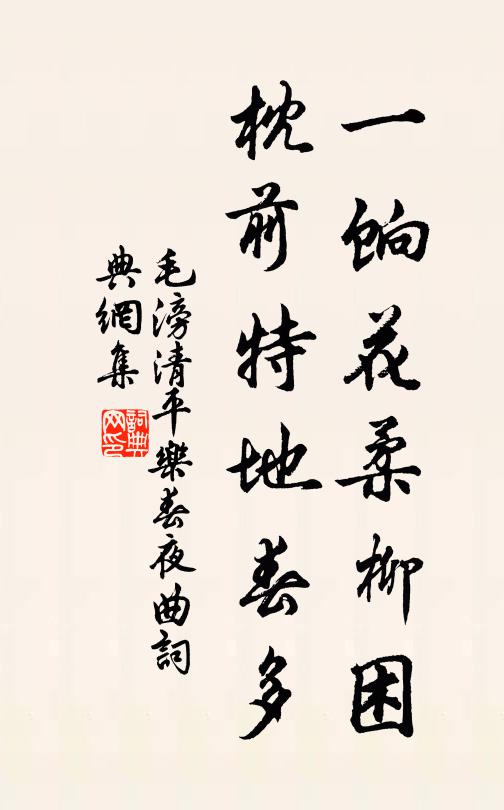 一餉花柔柳困
枕前特地春多
毛滂清平樂春夜曲詞
典網集
詞典網印